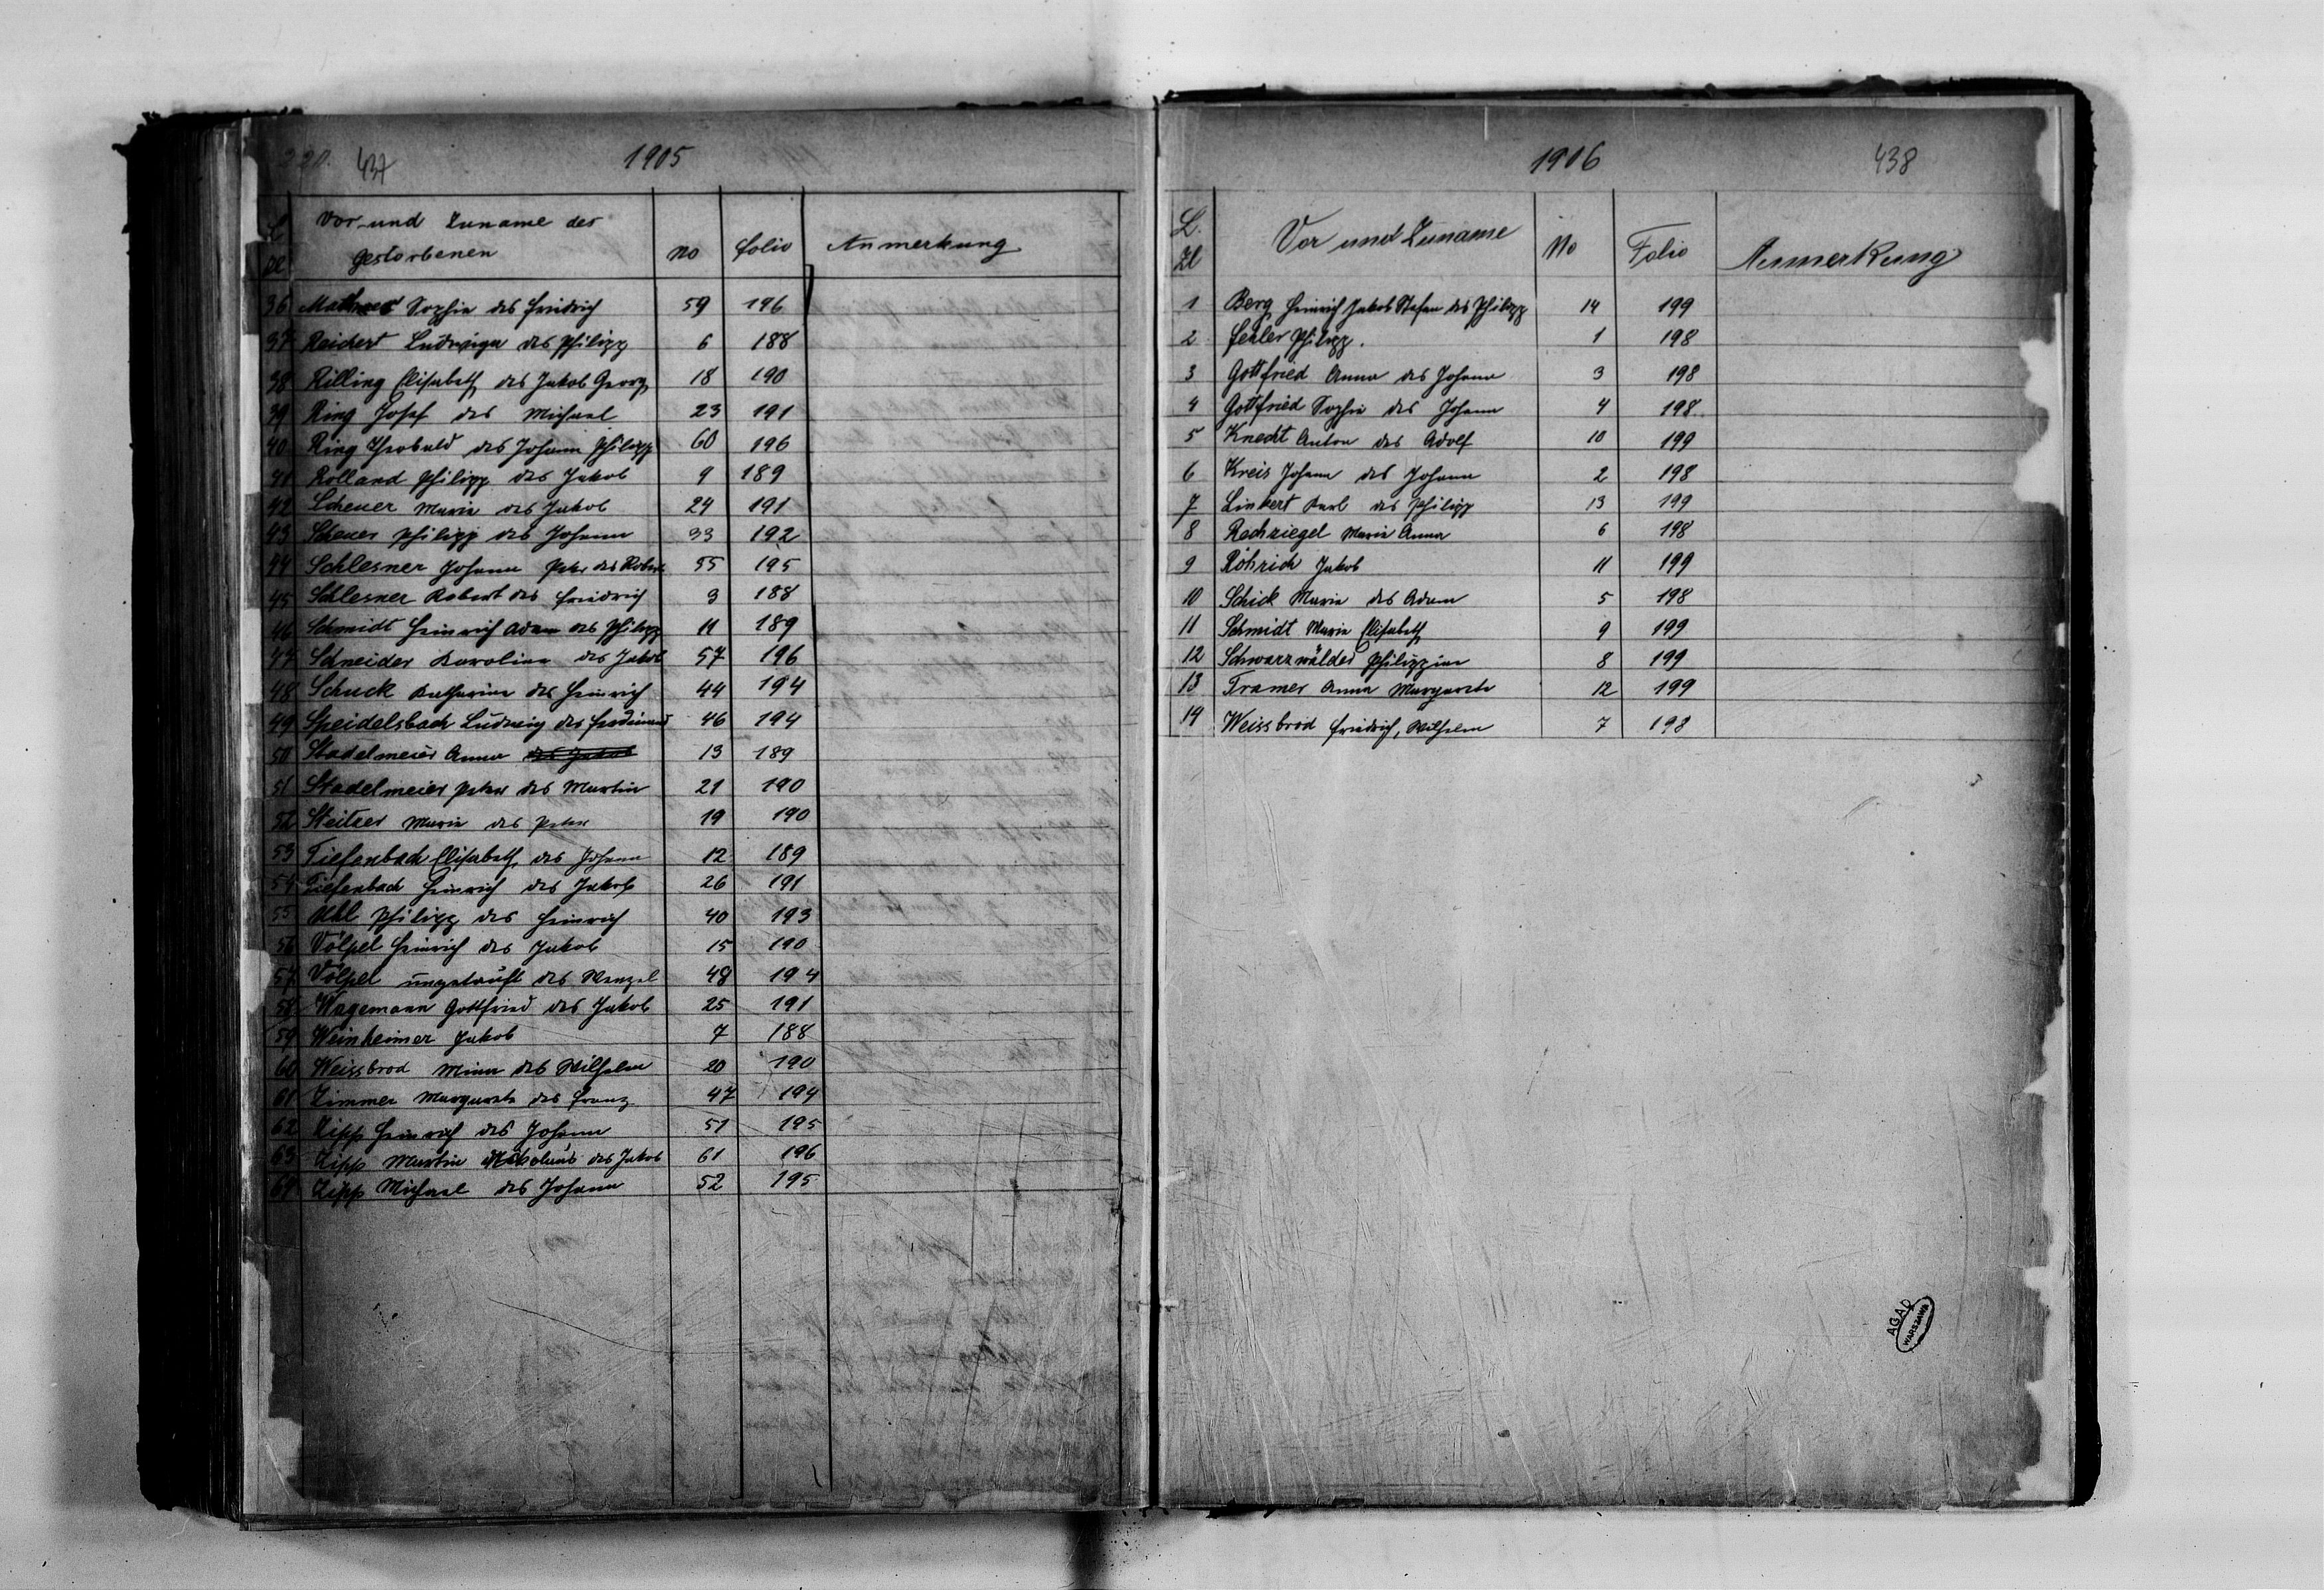 220. 437 1905
L Zl Vor- und Zuname des gestorbenen No folio Anmerkung
36 Sophie des Friedrich 59 196
37 Reichert Ludwiga des Philipp 6 188
38 Rilling Elisabeth des Jakob Georg 18 190
39 Ring Josef des Michael 23 191
40 Ring Theobald des Johann Philipp 60 196
41 Rolland Philipp des Jakob 9 189
42 Scheuer Marie des Jakob 24 191
43 Scheuer Philipp des Johann 33 192
44 Schlesner Johann Peter des Robert 55 195
45 Schlesner Robert des Friedrich 3 188
46 Schmidt Heinrich Adam des Philipp 11 189
47 Schneider Karolina des Jakob 57 196
48 Schuck Katharina des Heinrich 44 194
49 Speidelsbach Ludwig des Ferdinand 46 194
50 Stadelmeier Anna des Jakob 13 189
51 Stadelmeier Peter des Martin 21 190
52 Steitzer Marie des Peter 19 190
53 Tiefenbach Elisabeth des Johann 12 189
54 Tiefenbach Heinrich des Jakob 26 191
55 Uhl Philipp des Heinrich 40 193
56 Völpel Heinrich des Jakob 15 190
57 Völpel ungetauft des Wenzel 48 194
58 Wagemann Gottfried des Jakob 25 191
59 Weinheimer Jakob 7 188
60 Weissbrod Mina des Wilhelm 20 190
61 Zimmer Margarete des Franz 47 194
62 Zipp Heinrich des Johann 51 195
63 Zipp Martin Nikolaus des Jakob 61 196
64 Zipp Michael des Johann 52 195
1906 438
L. Zl Vor und Zuname No Folio Anmerkung
1 Berg Heinrich Jakob Stefan des Philipp 14 199
2 Fehler Philipp. 1 198
3 Gottfried Anna des Johann 3 198
4 Gottfried Sophie des Johann 4 198
5 Knecht Anton des Adolf 10 199
6 Kreis Johann des Johann 2 198
7 Linkert Karl des Philipp 13 199
8 Rechziegel Maria Anna 6 198
9 Röhrich Jakob 11 199
10 Schick Marie des Adam 5 198
11 Schmidt Maria Elisabeth 9 199
12 Schwarzwälder Philippine 8 199
13 Tramer Anna Margarete 12 199
14 Weissbrod Friedrich, Wilhelm 7 198
AGAD
WARSZAWA